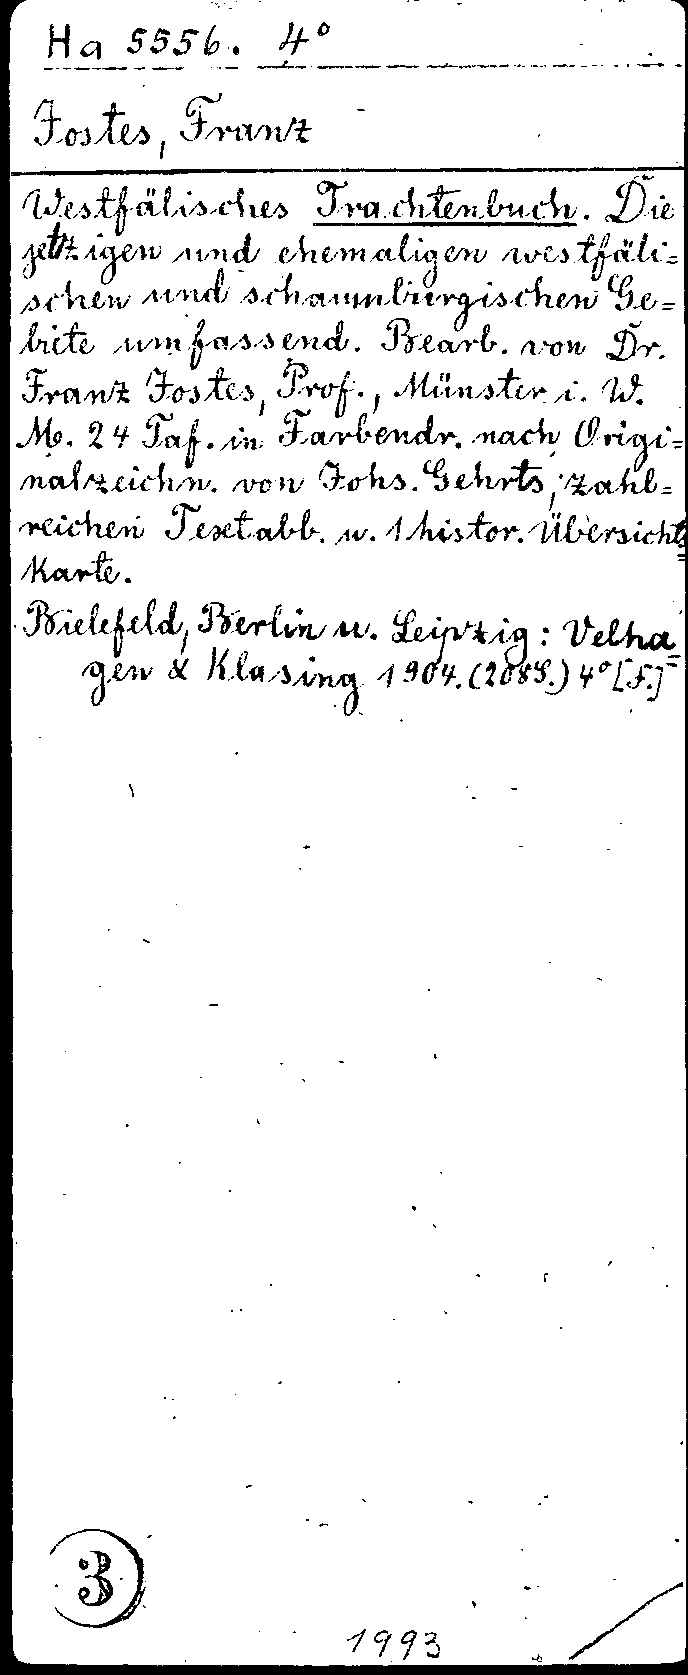 Ha 5556. 4°
Jostes, Franz
Westfälisches Trachtenbuch. Die
jetzigen und ehemaligen westfäli=
schen und schaumburgischen Ge=
biete umfassend. Bearb. von Dr.
Franz Jostes, Prof., Münster i. W.
M. 24 Taf. in Farbendr. nach Origi=
nalzeichn. von Johs. Gehrts, zahl=
reichen Textabb. u. 1 histor. Übersichts=
karte.
Bielefeld, Berlin u. Leipzig: Velha=
gen & Klasing 1904. (208 S.) 4° [F.]
3
1993